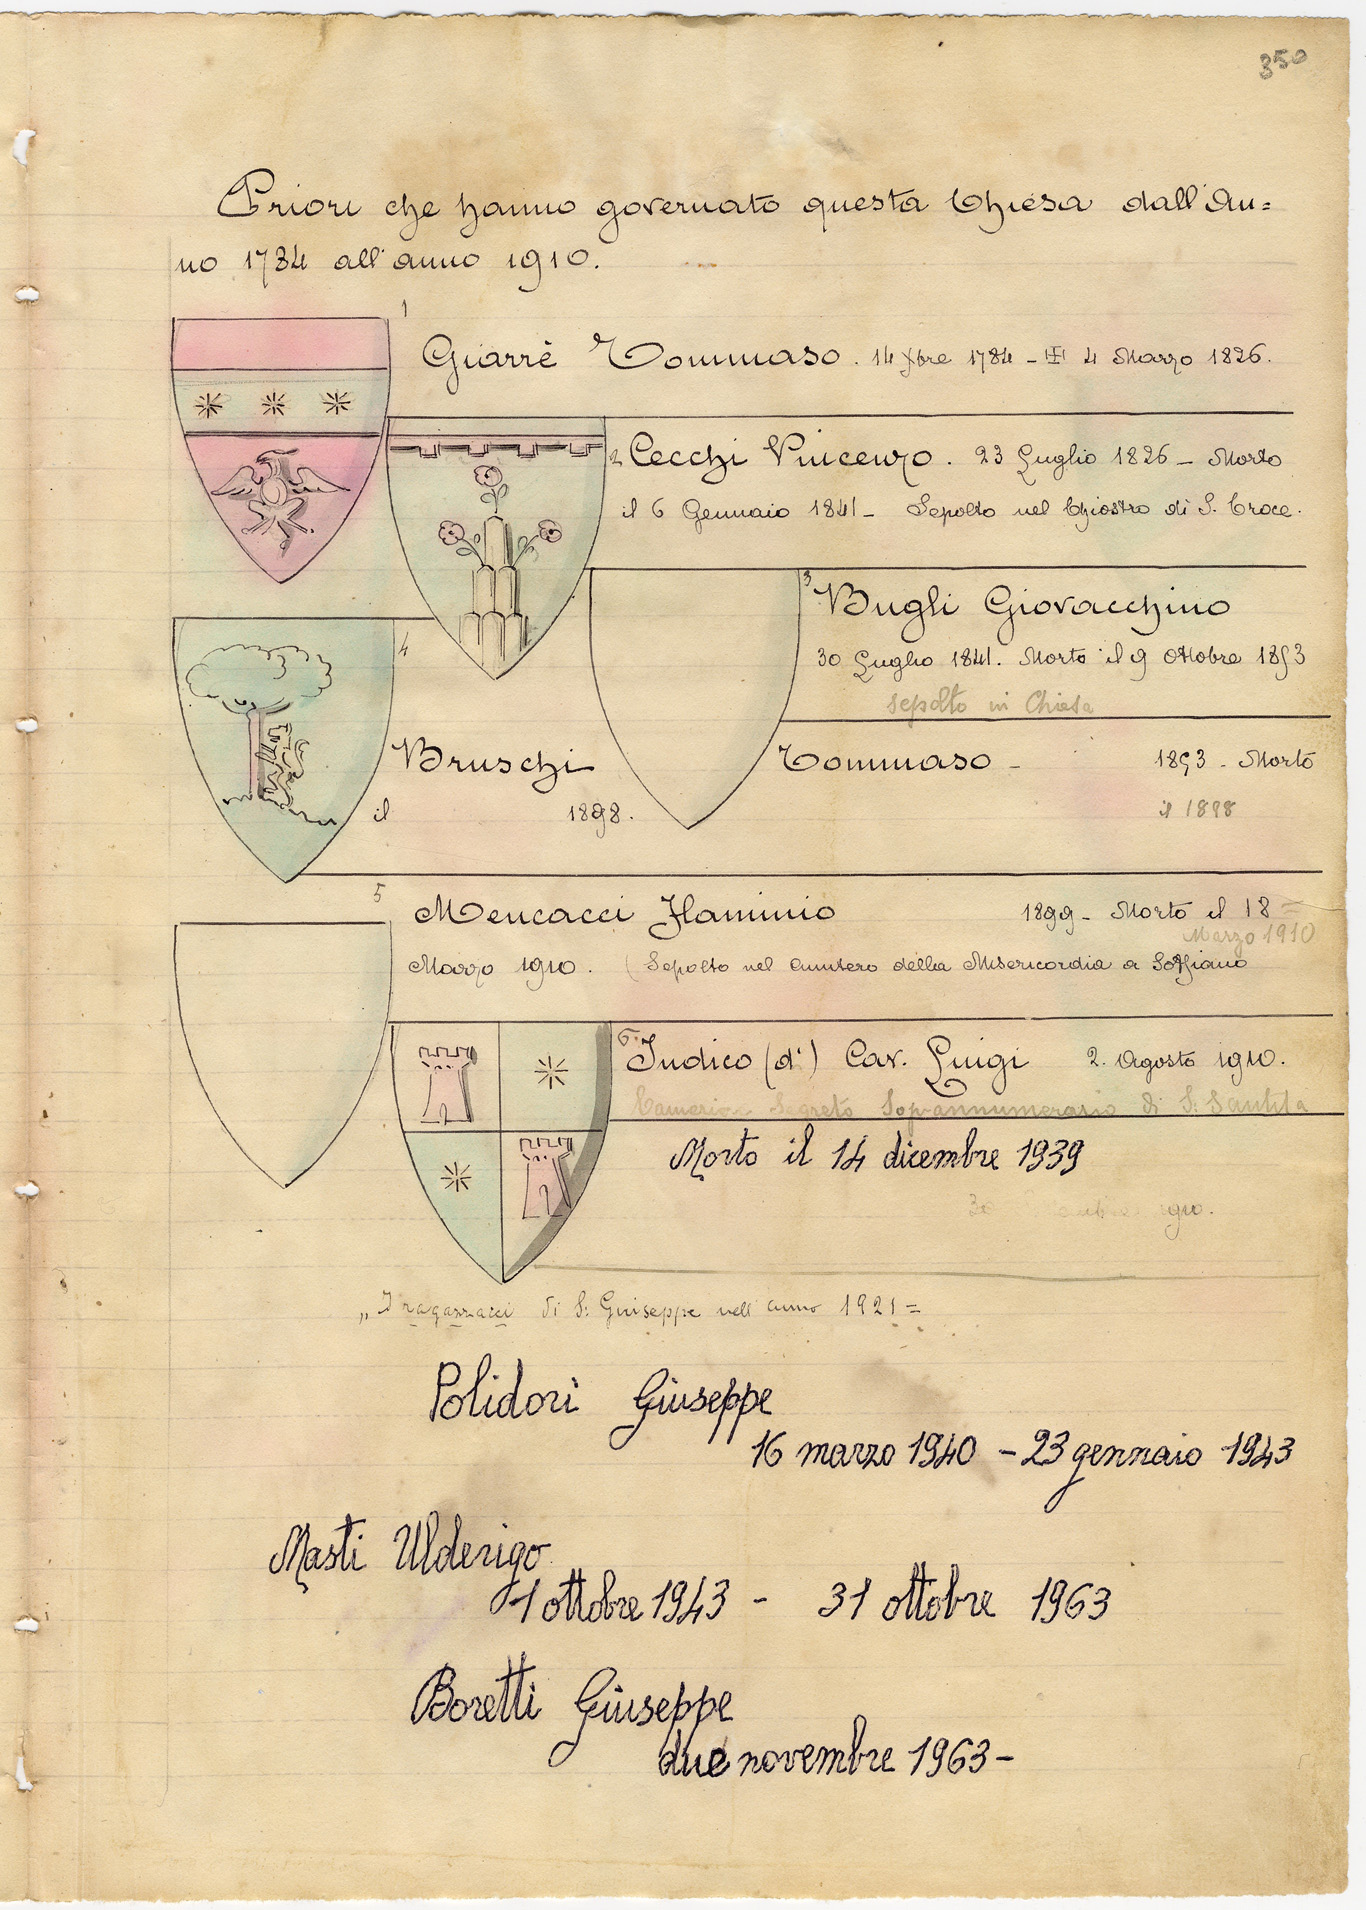 350
Priori che hanno governato questa Chiesa dall'An=
no 1784 all'anno 1910.
1
Giarrè Tommaso. 14 Xbre 1784 - 4 Marzo 1826.
2 Cecchi Vincenzo. 23 Luglio 1826 - Morto
il 6 Gennaio 1841 - Sepolto nel Chiostro di S. Croce.
3 Bugli Giovacchino
30 Luglio 1841. Morto il 9 Ottobre 1893
sepolto in Chiesa
4
Bruschi Tommaso - 1893 - Morto
il 1898.
il 1898
5
Mencacci Flaminio 1899 - Morto il 18 =
Marzo 1910
Marzo 1910. (Sepolto nel Cimitero della Misericordia a Soffiano
6. Indico (d') Cav. Luigi 2. Agosto 1910.
Cameriere Segreto Soprannumerario di S. Santità
Morto il 14 dicembre 1939
30 1910.
„I ragazzacci di S. Giuseppe nell'anno 1921 =
Polidori Giuseppe
16 marzo 1940 - 23 gennaio 1943
Masti Ulderigo
1 ottobre 1943 - 31 ottobre 1963
Boretti Giuseppe
due novembre 1963 -